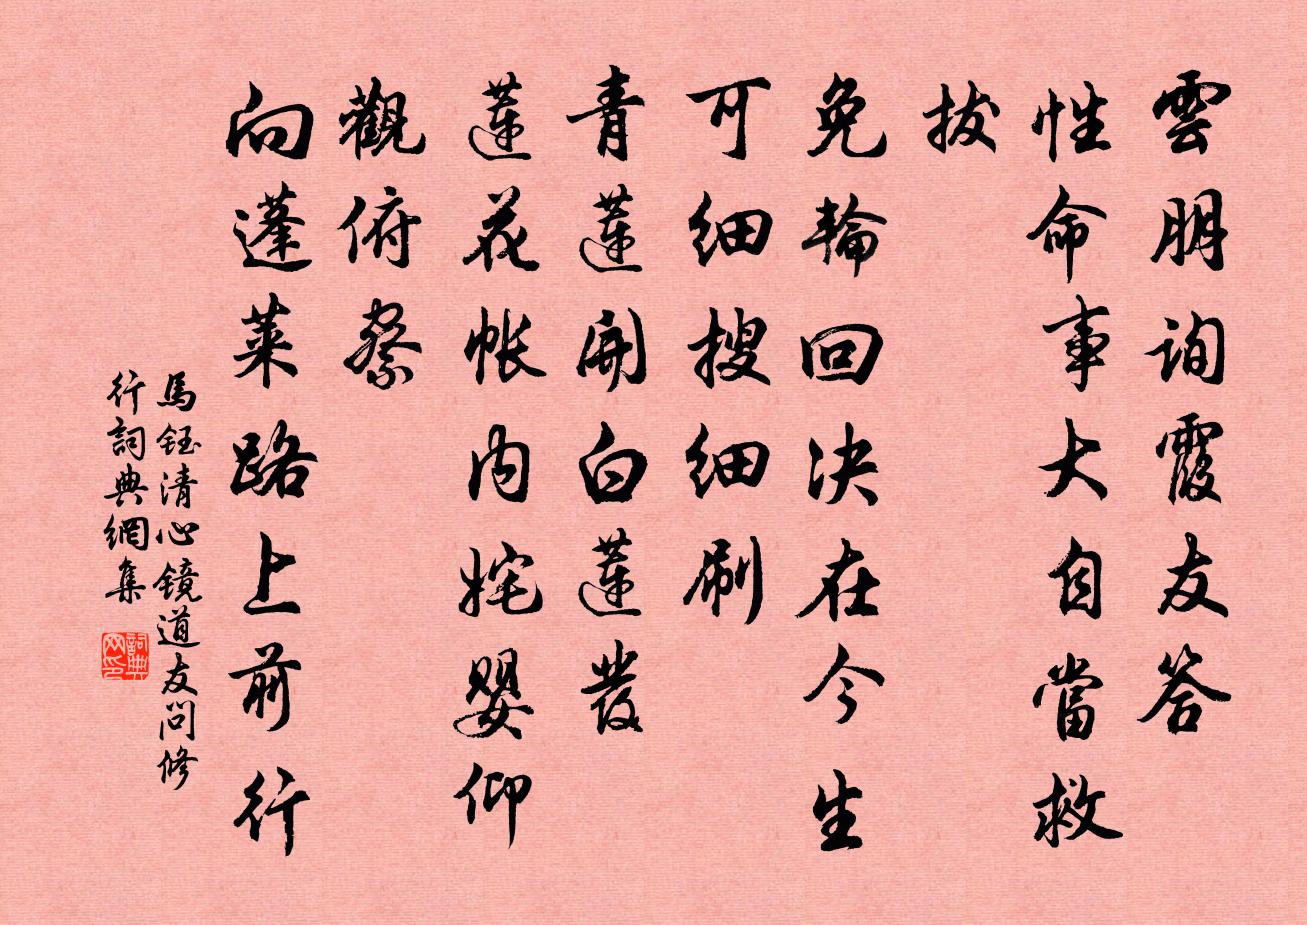 雲朋詢霞友答
性命事大自當救
拔
免輪回決在今生
可細搜細刷
青蓮開白蓮發
蓮花帳內姹嬰仰
觀俯察
向蓬萊路上前行
馬鈺清心鏡道友問修
行詞典網集
詞典
网印